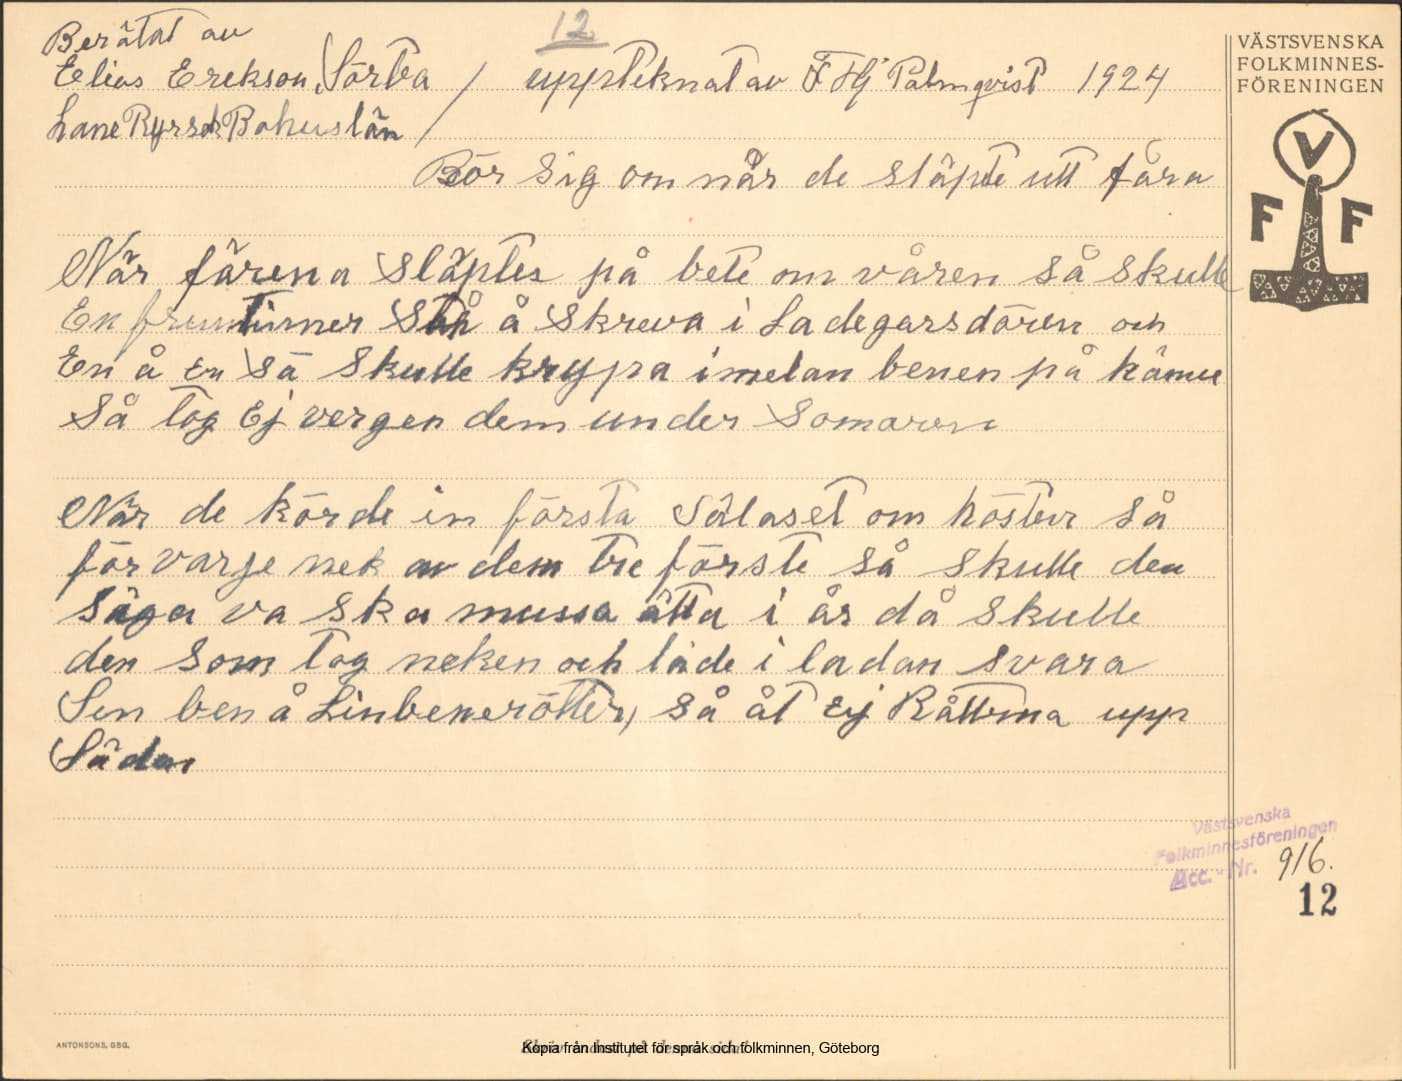 12
Berätat av
Elias Erekson, Sörba / uppteknat av F Hj Palmqvist 1924
Lane Ryrsdr Bohuslän /
Rör sig om når de släpte utt fåra
När fårena Släptes på bete om våren så skulle
En fruntimer Stå å Skreva i Ladegarsdören och
En å En Så Skulle krypa imelan benen på häner
Så tog Ej vergen dem under Somaren
När de körde in första Sälaset om hösten så
för varje nek av dem tre förste så skulle den
Säga va Ska mussa ätta i år då Skulle
den Som tog neken och lade i ladan svara
Sen ben å Linbenerötter, så åt Ej Råttma upp
Säden
VÄSTSVENSKA
FOLKMINNES-
FÖRENINGEN
V
F F
Västsvenska
Folkminnesföreningen
Acc. - Nr. 916.
12
ANTONSONS, GBG.
Kopia från Institutet för språk och folkminnen, Göteborg